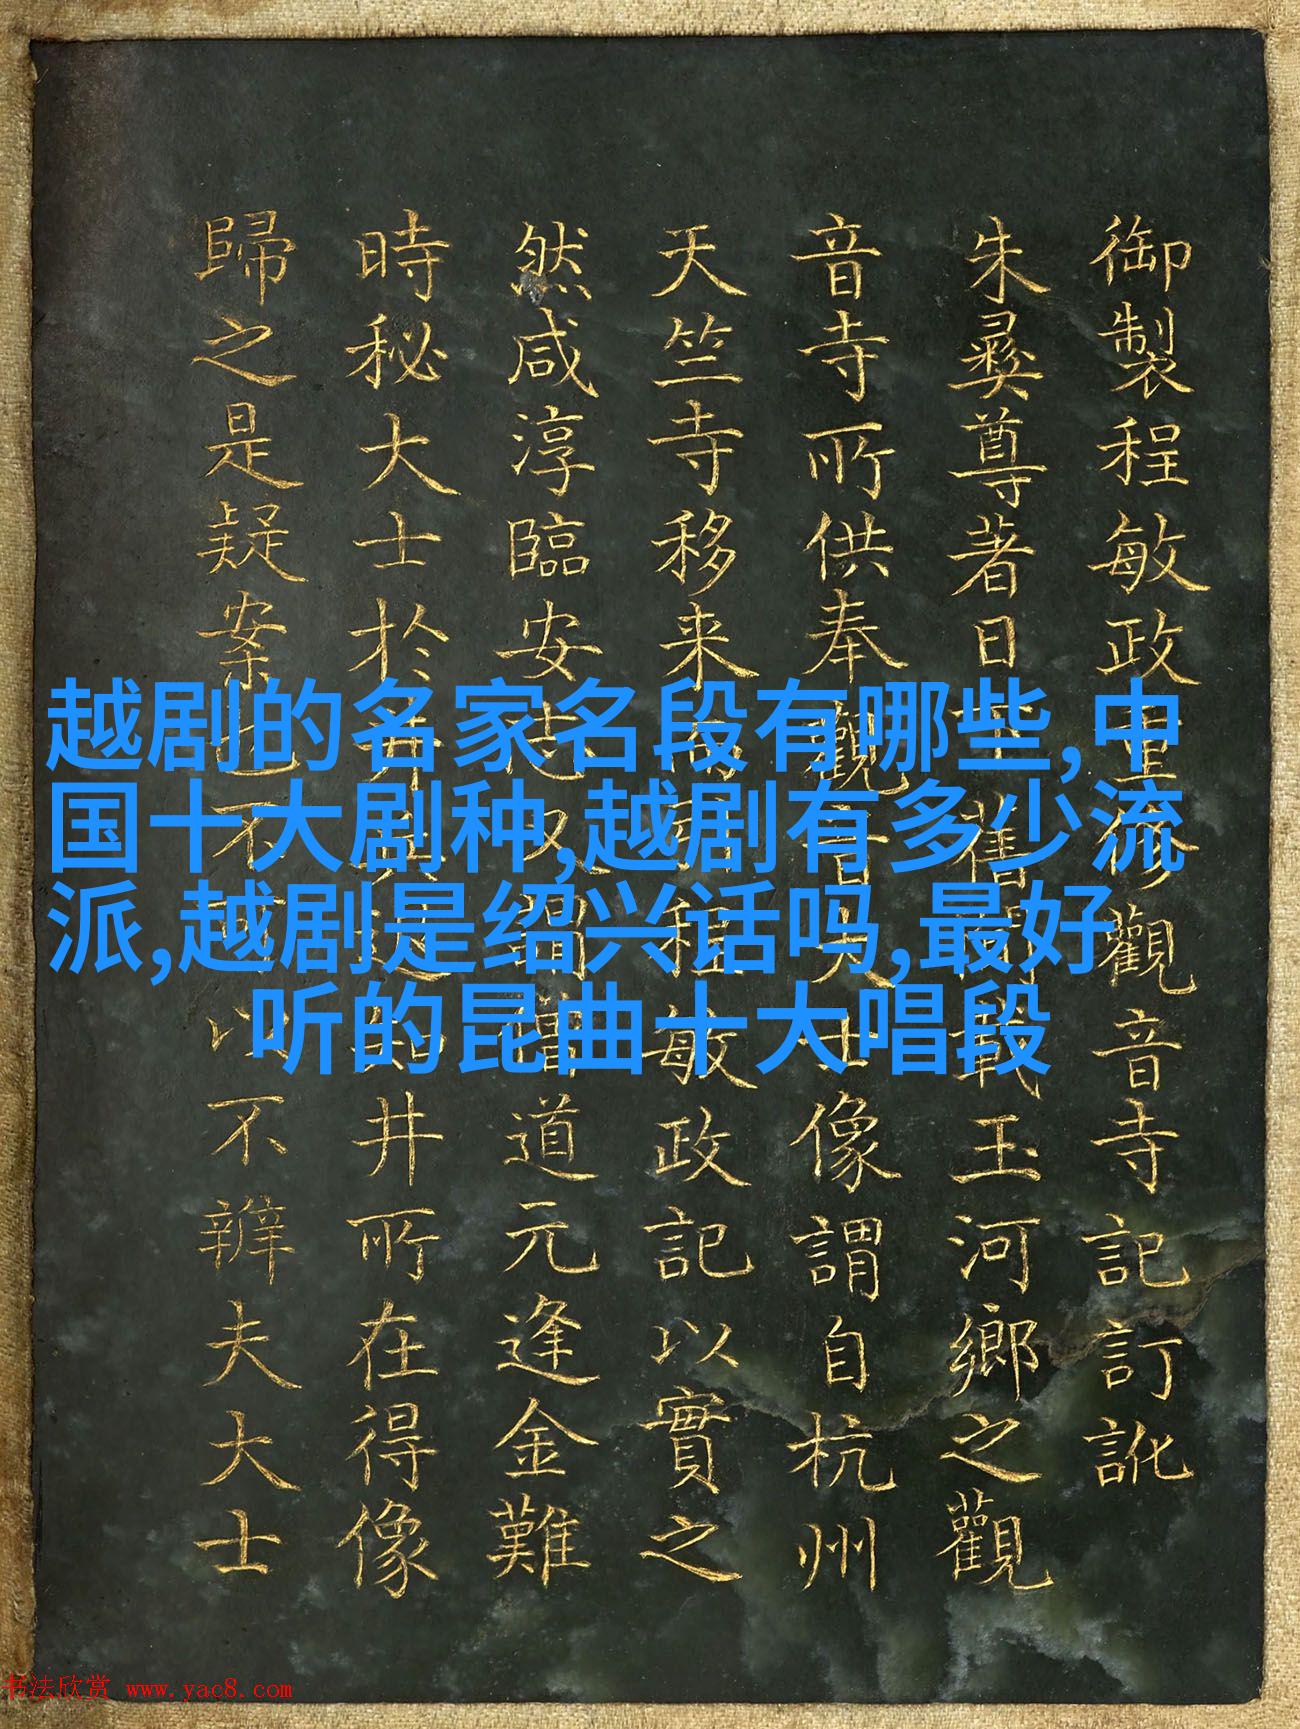 越剧的名家名段有哪些,中
国十大剧种,越剧有多少流
派,越剧是绍兴话吗,最好
听的昆曲十大唱段
御製程敏政重修觀音寺記訂訛
朱彝尊著日下舊聞載玉河鄉之觀
音寺所供奉觀音大士像謂自杭州
天竺寺移来而程敏政記以實之
然咸淳臨安志又謂道元逢金難
時秘大士於井井所在得像
歸之是疑案也不可以不辨夫大士
书法欣赏 www.yac8.com